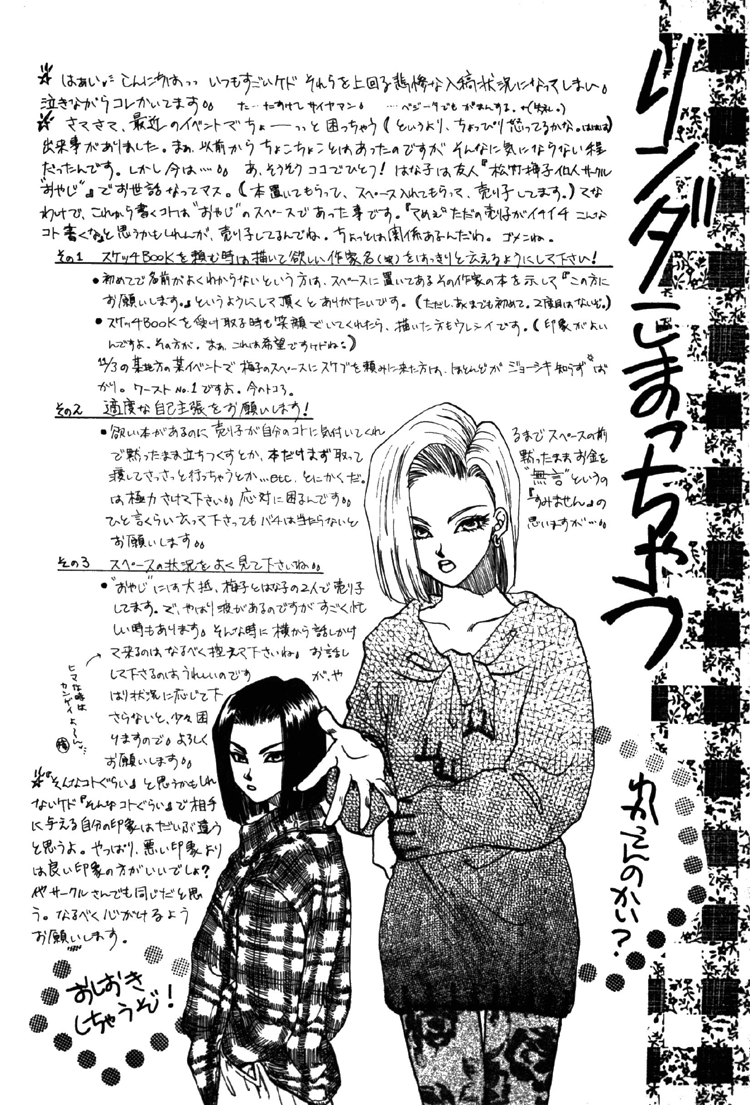 リンダこまっちゃう
はぁい。こんにちはっっ いつもすごいケド それらを上回る悲惨な入稿状況になってしまい。
泣きながらコレかいてます。。 た…たすけてサイヤマン。 …ベジータでもがまんする。←(失礼。)
さてさて、最近のイベントでちょーーっっと困っちゃう(というより、ちょっぴり怒ってるかな。ははは)
出来事がありました。まぁ、以前からちょこちょことはあったのですが そんなに気にならない程
だったんです。しかし今は…。。 あ、そうそうココでひとつ! はな子は友人『松竹梅子仙人サークル
"おやじ"』でお世話なってマス。(本置いてもらって、スペース入れてもらって、売り子してます。)てな
わけで、これから書くコトは"おやじ"のスペースであった事です。『てめぇただの売り子がイチイチこんな
コト書くな』と思うかもしれんが、売り子してるんでね。ちょっとは関係あるんだわ。ゴメンね。
その1 スケッチBOOKを頼む時は描いて欲しい作家名をはっきりと云えるようにして下さい!
●初めてで名前がよくわからないという方は、スペースに置いてあるその作家の本を示して『この方に
お願いします。』というようにして頂くとありがたいです。(ただし、あくまでも初めて。2度目はないぞ。)
●スケッチBOOKを受け取る時も笑顔でいてくれたら、描いた方もウレシイです。(印象がよい
んですよ、その方が。まぁ、これは希望ですけどね。)
11/3の某地方の某イベントで梅子のスペースにスケブを頼みに来た方は、ほとんどがジョーシキ知らず"ば
かり。ワーストNo.1ですよ。今のトコろ。
その2 適度な自己主張をお願いします!
●欲しい本があるのに売り子が自分のコトに気付いてくれるまでスペースの前
で黙ったまま立ちつくすとか、本だけまず取って黙ったままお金を
渡してさっさと行っちゃうとか…etc. とにかくだ。"無言"というの
は極力さけて下さい。。応対に困るんです。。『すみません』の
ひと言くらい云って下さってもバチは当たらないと思いますが…。。
お願いします。。
その3 スペースの状況をよく見て下さいね。。
●"おやじ"には大抵、梅子とはな子の2人で売り子
してます。で、やはり波があるのですがすごく忙
しい時もあります。そんな時に横から話しかけ
て来るのはなるべく控えて下さいね。お話し
して下さるのはうれしいのですが、や
はり状況に応じて下
さらないと、少々困
りますので。よろしく
お願いします。。
ヒマな時は
カンゲイ
よーん。
"そんなコトぐらい"と思うかもしれ
ないケド『そんなコトぐらい』で相手
に与える自分の印象はだいぶ違う
と思うよ。やっぱり、悪い印象より
は良い印象の方がいいでしょ?
他サークルさんでも同じだと思
う。なるべく心がけるよう
お願いします。
わかってんのかい?
おしおき
しちゃうぞ!